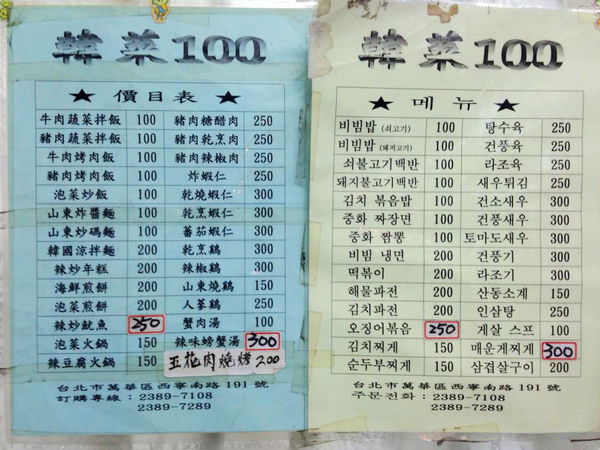 韓菜100
★ 價目表 ★
牛肉蔬菜拌飯 100 豬肉糖醋肉 250
豬肉蔬菜拌飯 100 豬肉乾烹肉 250
牛肉烤肉飯 100 豬肉辣椒肉 250
豬肉烤肉飯 100 炸蝦仁 250
泡菜炒飯 100 乾燒蝦仁 300
山東炸醬麵 100 乾烹蝦仁 300
山東炒碼麵 100 蕃茄蝦仁 300
韓國涼拌麵 200 乾烹鷄 300
辣炒年糕 200 辣椒鷄 300
海鮮煎餅 200 山東燒鷄 150
泡菜煎餅 200 人蔘鷄 250
辣炒魷魚 250 蟹肉湯 100
泡菜火鍋 150 辣味螃蟹湯 300
辣豆腐火鍋 150 五花肉燒烤 200
台北市萬華區西寧南路191號
訂購專線：2389-7108
2389-7289
韓菜100
★ 메뉴 ★
비빔밥 (쇠고기) 100 탕수육 250
비빔밥 (돼지고기) 100 건풍육 250
쇠불고기백반 100 라조육 250
돼지불고기백반 100 새우튀김 250
김치 볶음밥 100 건소새우 300
중화 짜장면 100 건풍새우 300
중화 짬뽕 100 토마도새우 300
비빔 냉면 200 건풍기 300
떡볶이 200 라조기 300
해물파전 200 산동소계 150
김치파전 200 인삼탕 250
오징어볶음 250 게살 스프 100
김치찌게 150 매운게찌게 300
순두부찌게 150 삼겹살구이 200
台北市萬華區西寧南路191號
주문전화：2389-7108
2389-7289